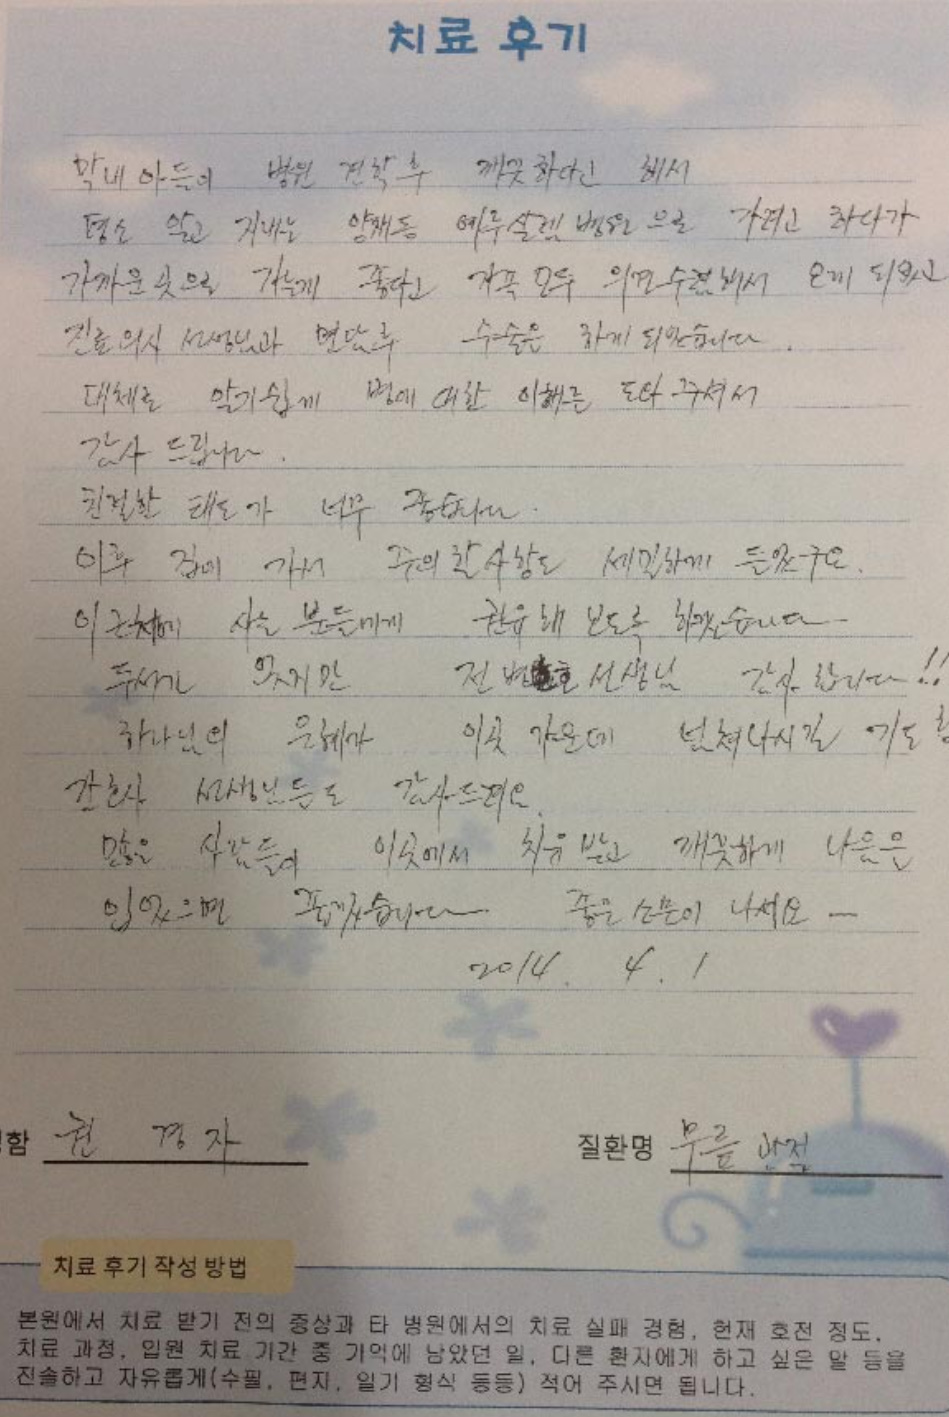 치료 후기
막내 아들이 병원 견학 후 깨끗하다고 해서
평소 알고 지내는 양재동 예루살렘 병원으로 가려고 하다가
가까운 곳으로 가는게 좋다고 가족 모두 의견수렴해서 오게 되었고
진료의식 선생님과 면담후 수술은 하게 되었습니다.
대체로 알기쉽게 병에 대한 이해를 도와 주셔서
감사 드립니다.
친절한 태도가 너무 좋습니다.
이후 집에 가서 주의할 사항도 세밀하게 들었구요.
이 근처에 사는 분들에게 권유해 보도록 하겠습니다
두서가 없지만 전 선생님 감사합니다!!
하나님의 은혜가 이곳 가운데 넘쳐나시길 기도
간호사 선생님들도 감사드려요.
많은 사람들이 이곳에서 치유 받고 깨끗하게 나음은
입었으면 좋겠습니다 좋은 소문이 나세요
2014. 4. 1
함 권 경자
질환명 무릎 관절
치료 후기 작성 방법
본원에서 치료 받기 전의 증상과 타 병원에서의 치료 실패 경험, 현재 호전 정도,
치료 과정, 입원 치료 기간 중 기억에 남았던 일, 다른 환자에게 하고 싶은 말 등을
진솔하고 자유롭게(수필, 편지, 일기 형식 등등) 적어 주시면 됩니다.